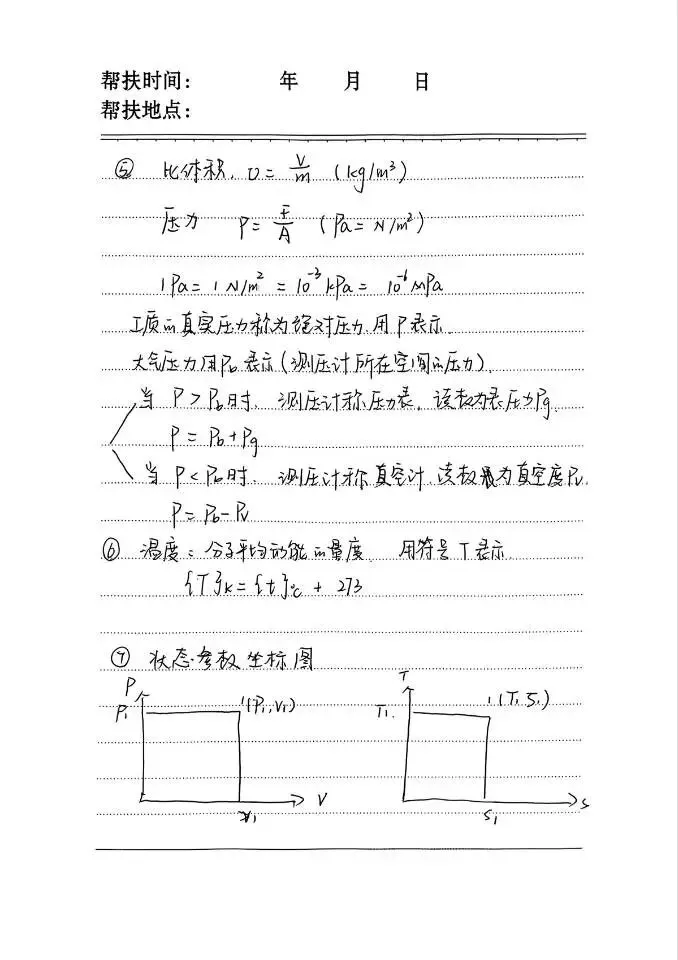 帮扶时间: 年 月 日
帮扶地点:
⑤ 比体积. υ = V/m (kg/m³)
压力 P = F/A (Pa = N/m²)
1Pa = 1 N/m² = 10⁻³ kPa = 10⁻⁶ MPa
工质的真实压力称为绝对压力, 用P表示.
大气压力用Pb表示(测压计所在空间的压力).
当 P > Pb时. 测压计称压力表. 该数为表压力Pg.
P = Pb + Pg
当 P < Pb时. 测压计称真空计. 该数为真空度Pv.
P = Pb - Pv
⑥ 温度: 分子平均动能的量度. 用符号T表示.
{T}K = {t}℃ + 273
⑦ 状态参数坐标图
P T
P₁ 1(P₁,V₁) T₁. 1(T₁ S₁)
V S
V₁ S₁